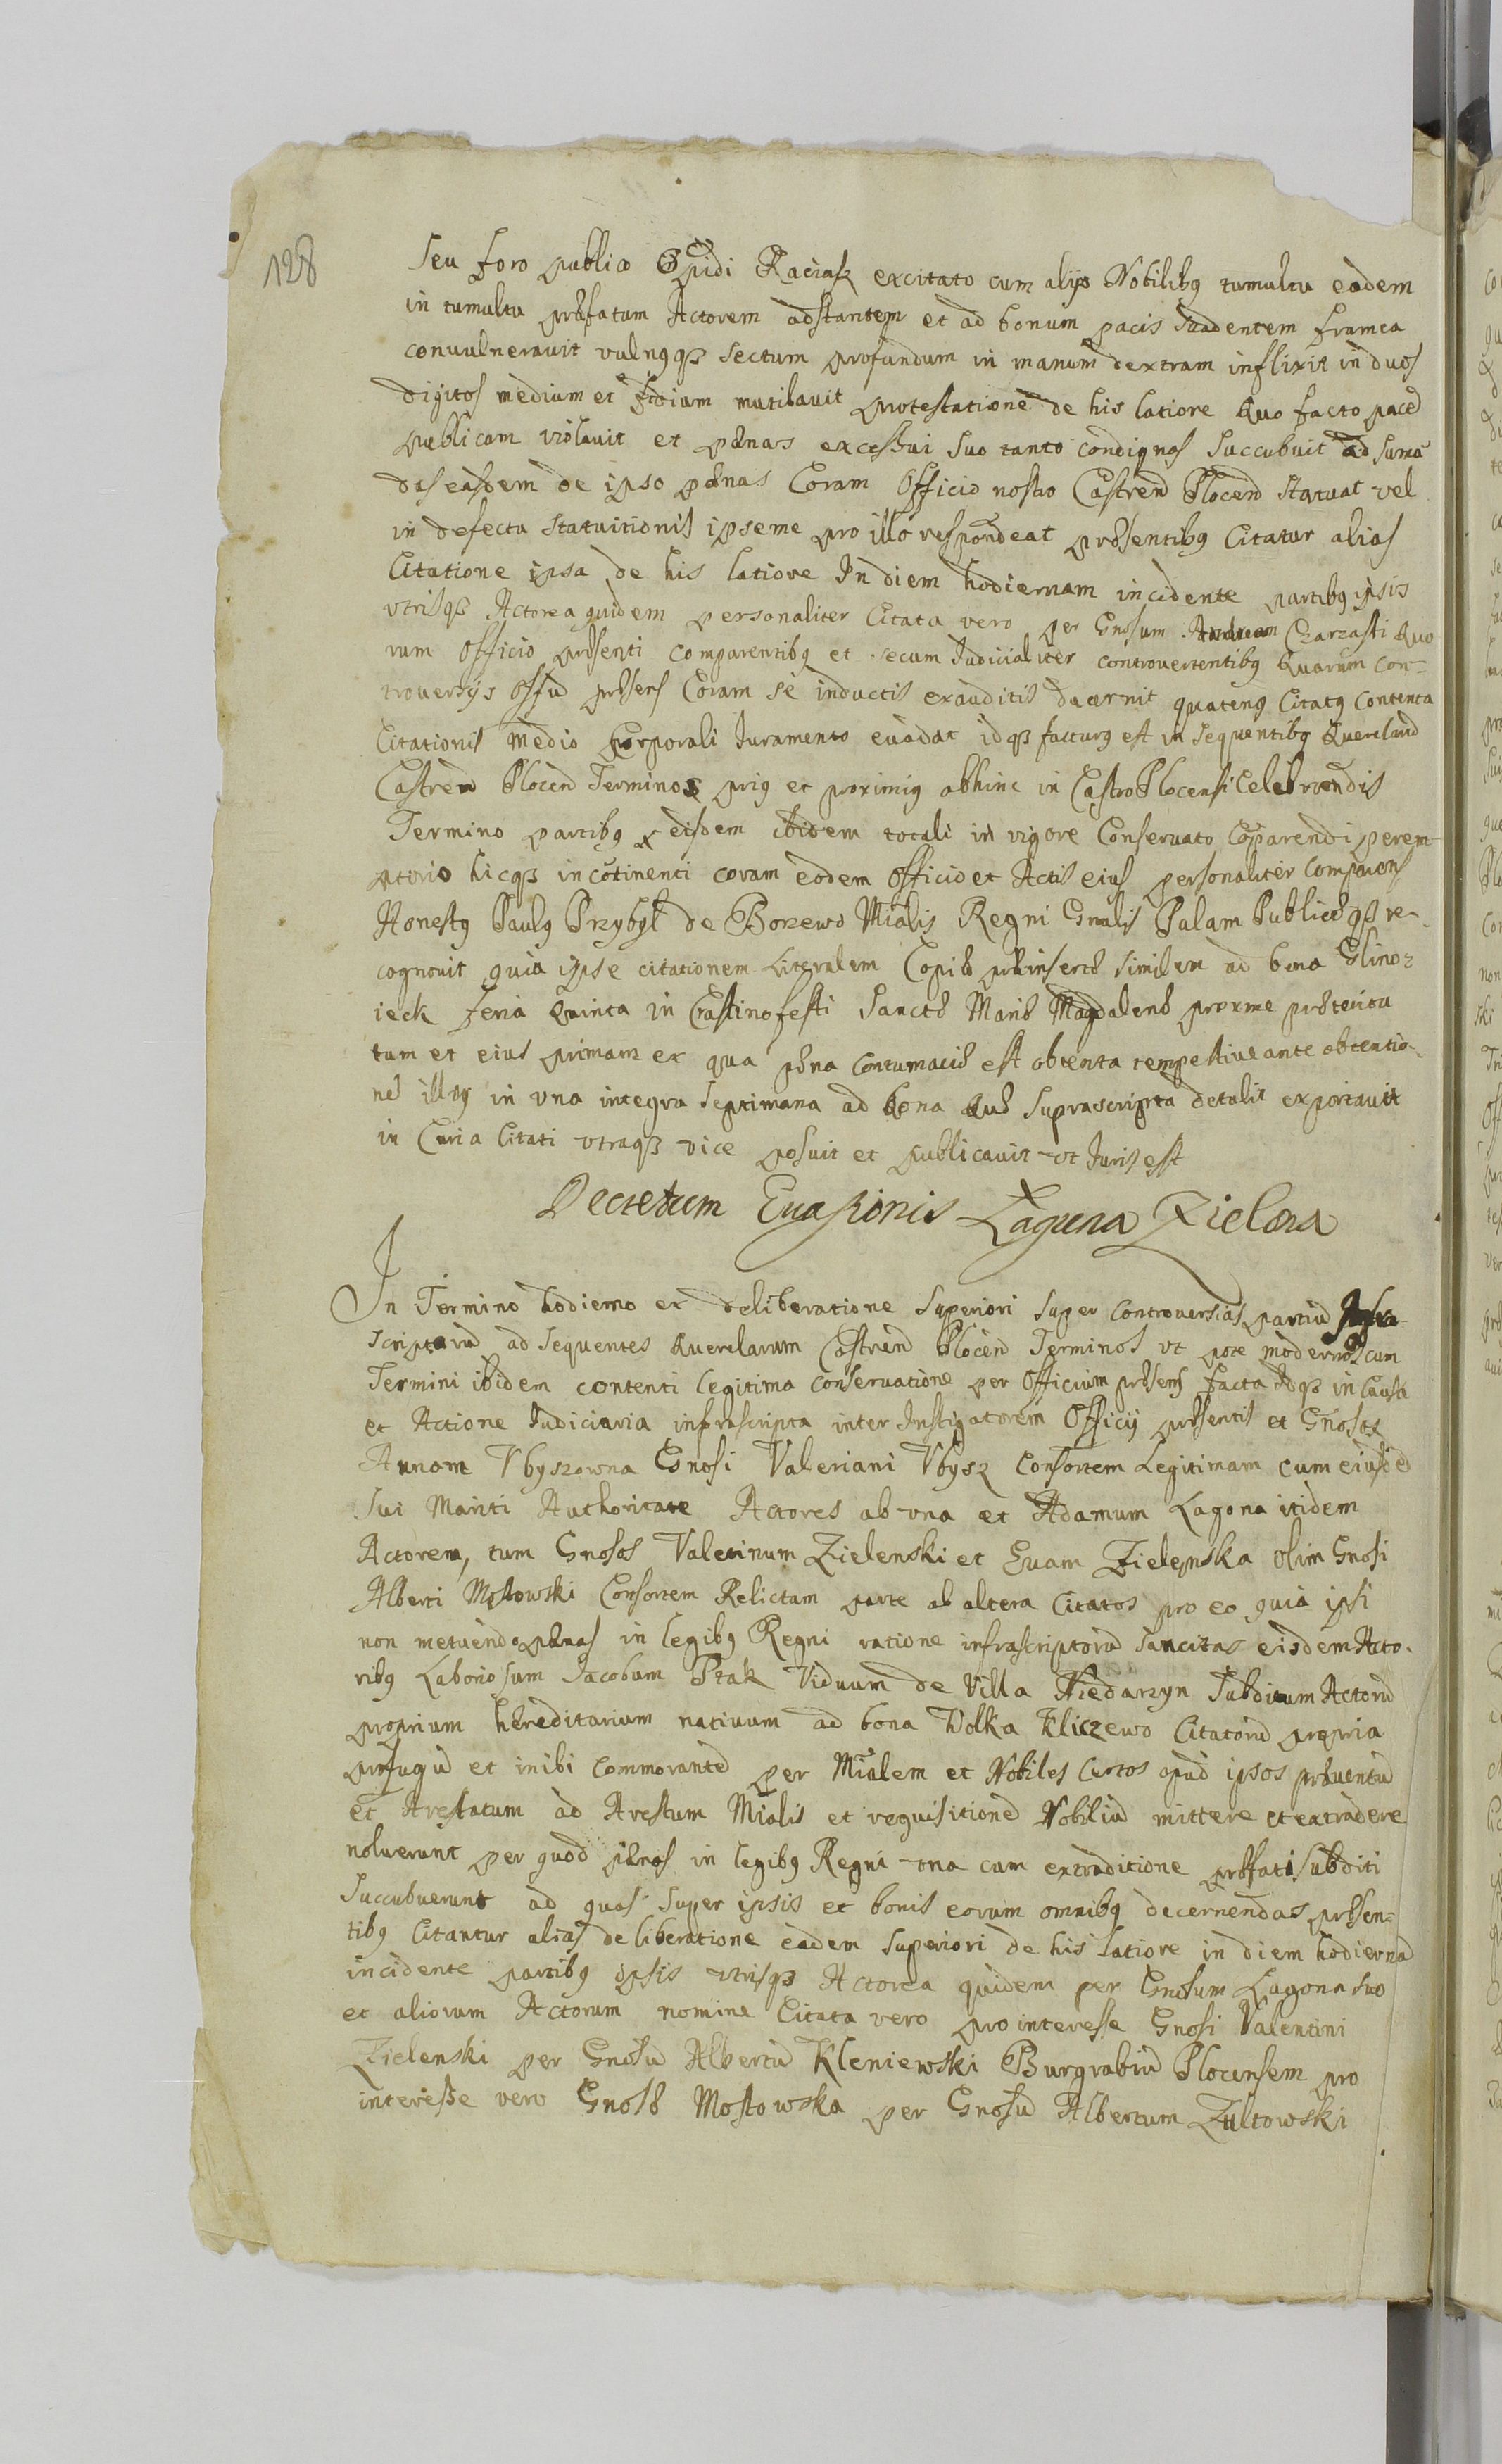 128
Seu foro publico Opidi Raciąsz excitato cum alijs Nobilibꝫ tumultu eodem
in tumultu præfatum Actorem adstantem et ad bonum pacis suadentem framea
convulneravit vulnꝫqꝫ sectum profundum in manum dextram inflixit in duos
digitos medium et mutilavit protestatione de his latiore Quo facto pacē
publicam violavit et pænas excessui suo tanto condignas succubuit ad sumē
das easdem de ipso pænas Coram Officio nostro Castren̄ Plocen̄ Statuat vel
in defectu statuitionis ipsemе pro illo respondeat præsentibꝫ Citatur alias
Citatione ipsa de his latiore In diem hodiernam incidente partibꝫ ipsis
vtrisqꝫ Actorea quidem personaliter Citata vero per Gnosum Andream Charzasti Quo
rum Officio præsenti comparentibꝫ et secum Judicialiter controvertentibꝫ Quarum con-
troversijs Offū præsens Coram se inductis exauditis decernit quatenꝫ Citatꝫ contenta
Citationis medio Corporali Juramento evadat idqꝫ facturꝫ est in sequentibꝫ Querelarū
Castren̄ Plocen̄ Terminos priꝫ et proximiꝫ abhinc in Castro Plocensi Celebrandis
Termino partibꝫ eisdem ibidem totali in vigore Conservato Cōparendi perem-
ptorio hicqꝫ incōtinenti coram eodem Officio et Actis eius personaliter comparens
Honestꝫ Paulꝫ Przybył de Borzewo Mialis Regni Gnalis Palam Publiceqꝫ re-
cognovit quia ipse citationem Literalem Copiæ præinsertæ similem ad bona Glino-
ieck feria Quinta in Crastino festi Sanctæ Mariæ Magdalenæ proxime præteritu
tum et eius primam ex qua pæna contumaciæ est obtenta tempestive ante obtentio-
nē illiꝫ in vna integra septimana ad bona Quæ suprascripta detulit exportavit
in Curia Citati vtraqꝫ vice posuit et publicavit vt Juris est
Decretum Evasionis Laguna Zielona
In Termino hodierno ex deliberatione Superiori super Controversias partiū Infra-
scriptarū ad sequentes Querelarum Castren̄ Plocen̄ Terminos vt pote modernos cum
Termini ibidem contenti legitima conservatione per Officium præsens facta Idqꝫ in Causa
et Actione Judiciaria infrascripta inter Instigatorem Officij præsentis et Gnosos
Annam Vbyszowna Gnosi Valeriani Vbysz Consortem Legitimam cum eiusdē
sui Mariti Authoritate Actores ab vna et Adamum Lagona itidem
Actorem, tum Gnosos Valentinum Zielenski et Evam Zielenska olim Gnosi
Alberti Mostowski Consortem Relictam parte ab altera Citatos pro eo quia ipsi
non metuendo pænas in legibꝫ Regni ratione infrascriptorū sancitas eisdem Acto-
ribꝫ Laboriosum Jacobum Ptak Viduum de Villa Niedarzyn Subditum Actorū
proprium hæreditarium nativum ad bona Wolka Kliczewo Citatorū propria
profugū et inibi commorantē per Mialem et Nobiles Certos apud ipsos præventū
et Arestatum ad Arestum Mialis et requisitionē Nobiliū mittere et extradere
noluerunt per quod pænas in legibꝫ Regni vna cum extraditione præfati subditi
Succubuerunt ad quas super ipsis et bonis eorum omnibꝫ decernendas præsen-
tibꝫ Citantur alias deliberatione eadem superiori de his latiore in diem hodiernā
incidente partibꝫ ipsis vtrisqꝫ Actorea quidem per Gnosum Lagona suo
et aliorum Actorum nomine Citata vero pro interesse Gnosi Valentini
Zielenski per Gnosū Albertū Kleniewski Burgrabiū Plocensem pro
interesse vero Gnosæ Mostowska per Gnosū Albertum Zultowski